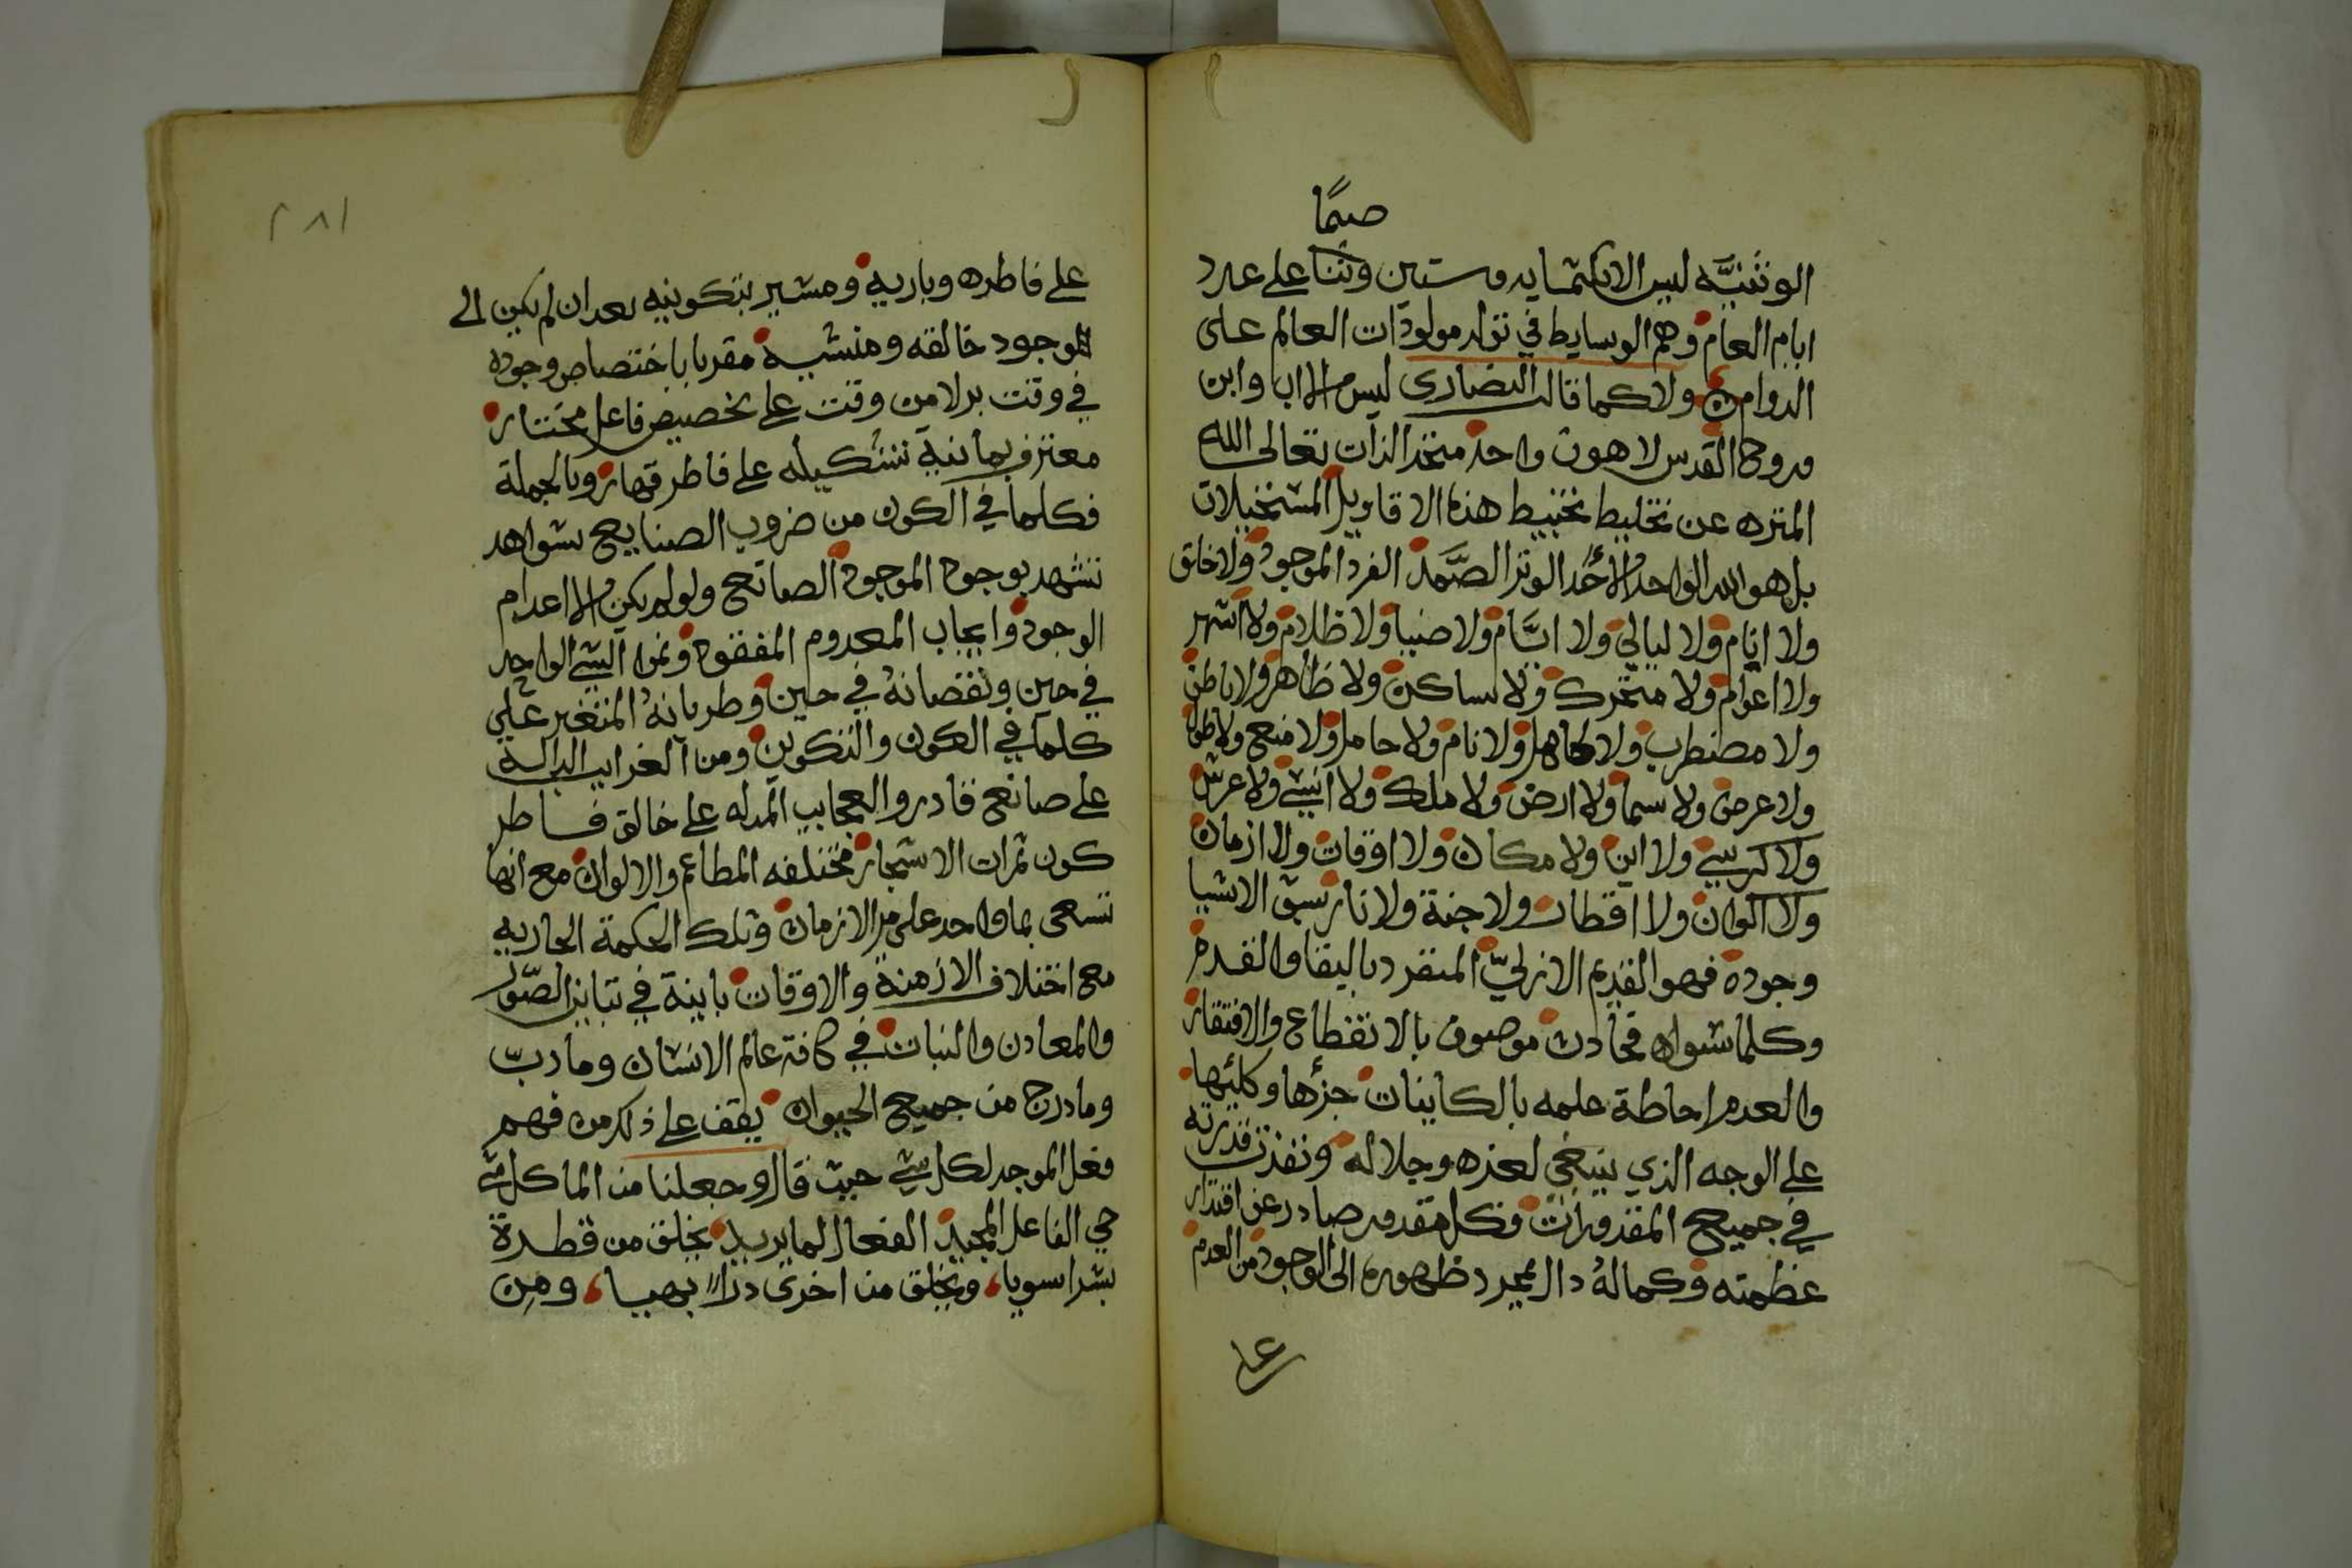 صمًا
الوثنيَّه ليس الا ثلثمايه وستين وثنا على عدد
ايام العام وهم الوسايط في تولد مولودات العالم على
الدوام ولا كما قالت النصارى ليس الا اب وابن
وروح القدس لاهوت واحد متحد الذات تعالى الله
المنزه عن تخليط تخبيط هذه الاقاويل المستحيلات
بل هو الله الواحد الأحد الوتر الصَّمد الفرد الموجود ولا خلق
ولا ايام ولا ليالي ولا انَّام ولا ضيا ولا ظلام ولا اشهر
ولا اعوام ولا متحرك ولا ساكن ولا ظاهر ولا باطن
ولا مضطرب ولا ولا نام ولا حامل ولا منع ولا طول
ولا عرض ولا سما ولا ارض ولا ملك ولا انسي ولا عرش
ولا كرسي ولا اين ولا مكان ولا اوقات ولا ازمان
ولا اكوان ولا اقطار ولا جنة ولا نار سبق الاشيا
وجوده فهو القديم الازليّ المنفرد بالبقا والقدم
وكلما سواه فحادث موصوف بالانقطاع والافتقار
والعدم احاطة علمه بالكاينات جزؤها وكليها
على الوجه الذي ينبغي لعزه وجلاله ونفذت قدرته
في جميع المقدورات فكل مقدور صادر عن اقتدار
عظمته وكماله دال بمجرد ظهوره الى الوجود من العدم
على
٢٨١
على فاطره وباريه ومشير بتكوينه بعد ان لم يكن الى
الموجود خالقه ومنشيه مقر بابا ختصاص وجوده
في وقت بدلا من وقت على تخصيص فاعل مختار
معترف بمانية تشكيله على فاطر قهار وبالجملة
فكلما في الكون من ضروب الصنايع شواهد
تشهد بوجود الموجود الصانع ولولم يكن الا اعدام
الوجود وايجاب المعدوم المفقود ونموا الشي الواحد
في حين ونقصانه في حين وطريانه المتغير على
كلما في الكون والتكوين ومن الغرايب الدالة
على صانع قادر والعجايب المدله على خالق فاطر
كون ثمرات الاشجار مختلفه المطاعم والالوان مع انها
تسعى بما واحد على مر الازمان وتلك الحكمة الجاريه
مع اختلاف الازمنة والاوقات باينة في تباين الصّور
والمعادن والنبات في كافة عالم الانسان وما دبّ
وما درج من جميع الحيوان يقف على ذلك من فهم
فعل الموجد لكل شي حيث قال وجعلنا من الما كل شي
حي الفاعل المجيد الفعال لما يريد يخلق من قطرة
بشرا سويا، ويخلق من اخرى درًا بهيا، ومن